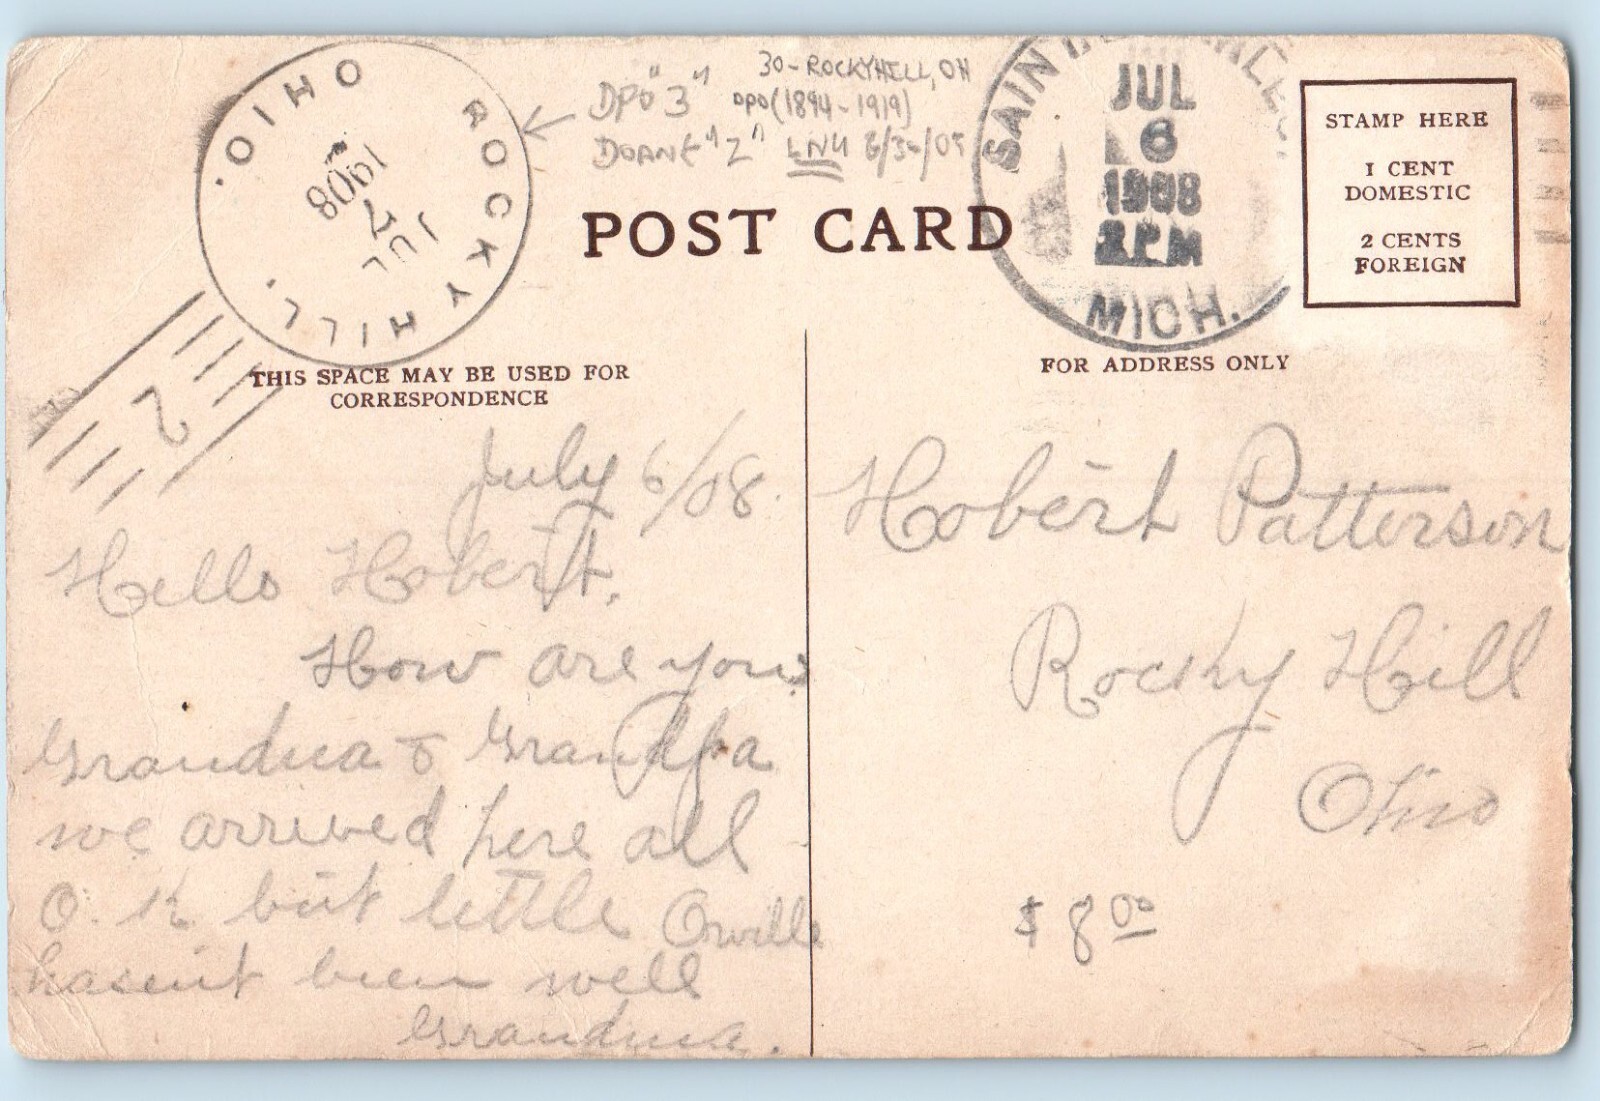 OHIO. ROCKY HILL.
JUL
7
1908
2
DPO "3"
30-ROCKYHILL, OH
DPO (1894-1919)
DOANE "2" LNU 8/30/05
SAINT
MICH.
JUL
6
1908
PM
POST CARD
STAMP HERE
1 CENT
DOMESTIC
2 CENTS
FOREIGN
THIS SPACE MAY BE USED FOR
CORRESPONDENCE
FOR ADDRESS ONLY
July 6/08.
Hello Hobert,
How are you?
Grandma & Grandpa
we arrived here all
O.K but little Orville
hasent been well
Grandma.
Hobert Patterson
Rocky Hill
Ohio
$8.00